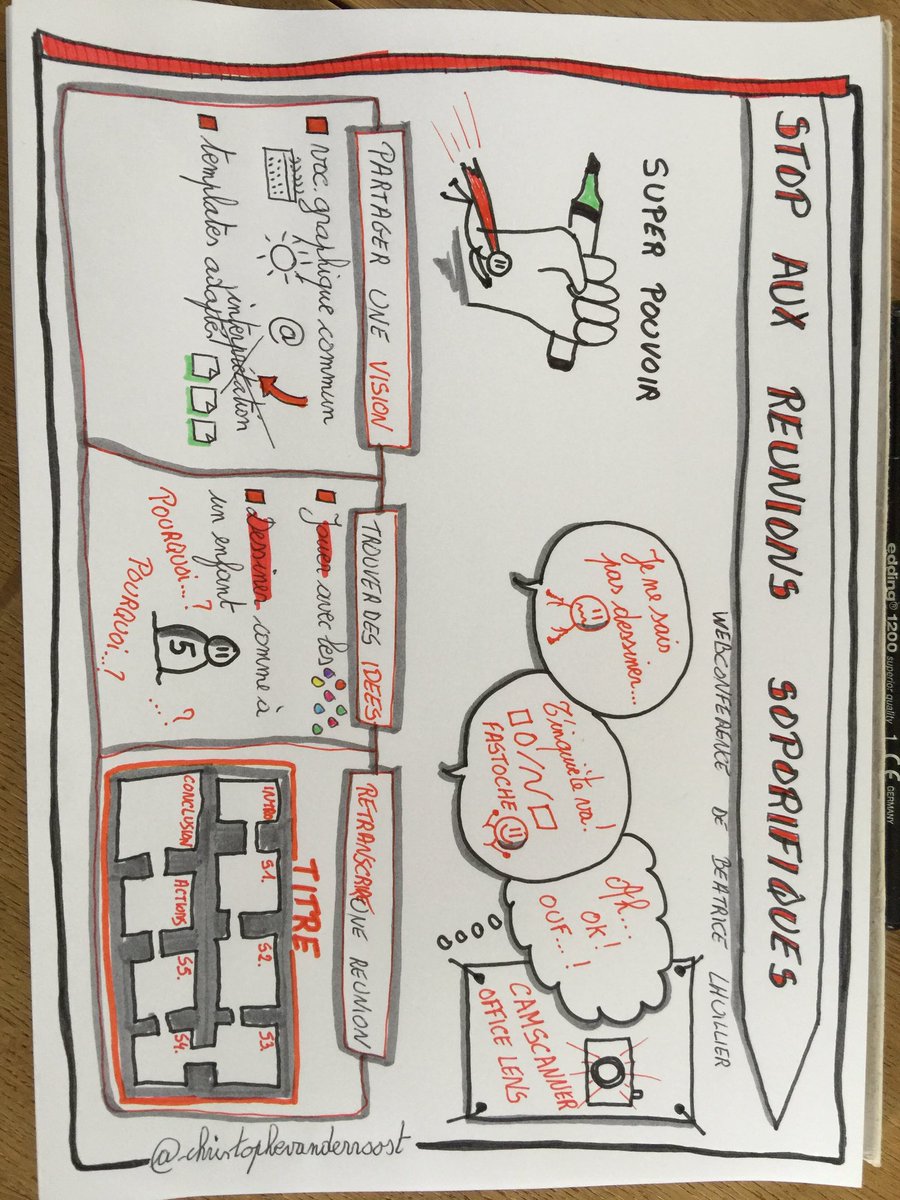 STOP AUX REUNIONS SOPORIFIQUES
WEBCONFERENCE DE BEATRICE LHUILLIER
SUPER POUVOIR
Je ne sais
pas dessiner...
T'inquiète va!
FASTOCHE
Ah...
OK!
OUF...!
CAMSCANNER
OFFICE LENS
PARTAGER UNE VISION
voc. graphique commun
@
interprétation
templates adaptés
TROUVER DES IDEES
Jouer avec les
Dessiner comme à
un enfant
POURQUOI...?
POURQUOI...?
...?
5
RETRANSCRIRE UNE REUNION
TITRE
INTRO
S1.
S2.
S3.
CONCLUSION
ACTIONS
S5.
S4.
@christophevanderroost
edding® 1200 superior quality 1 CE GERMANY